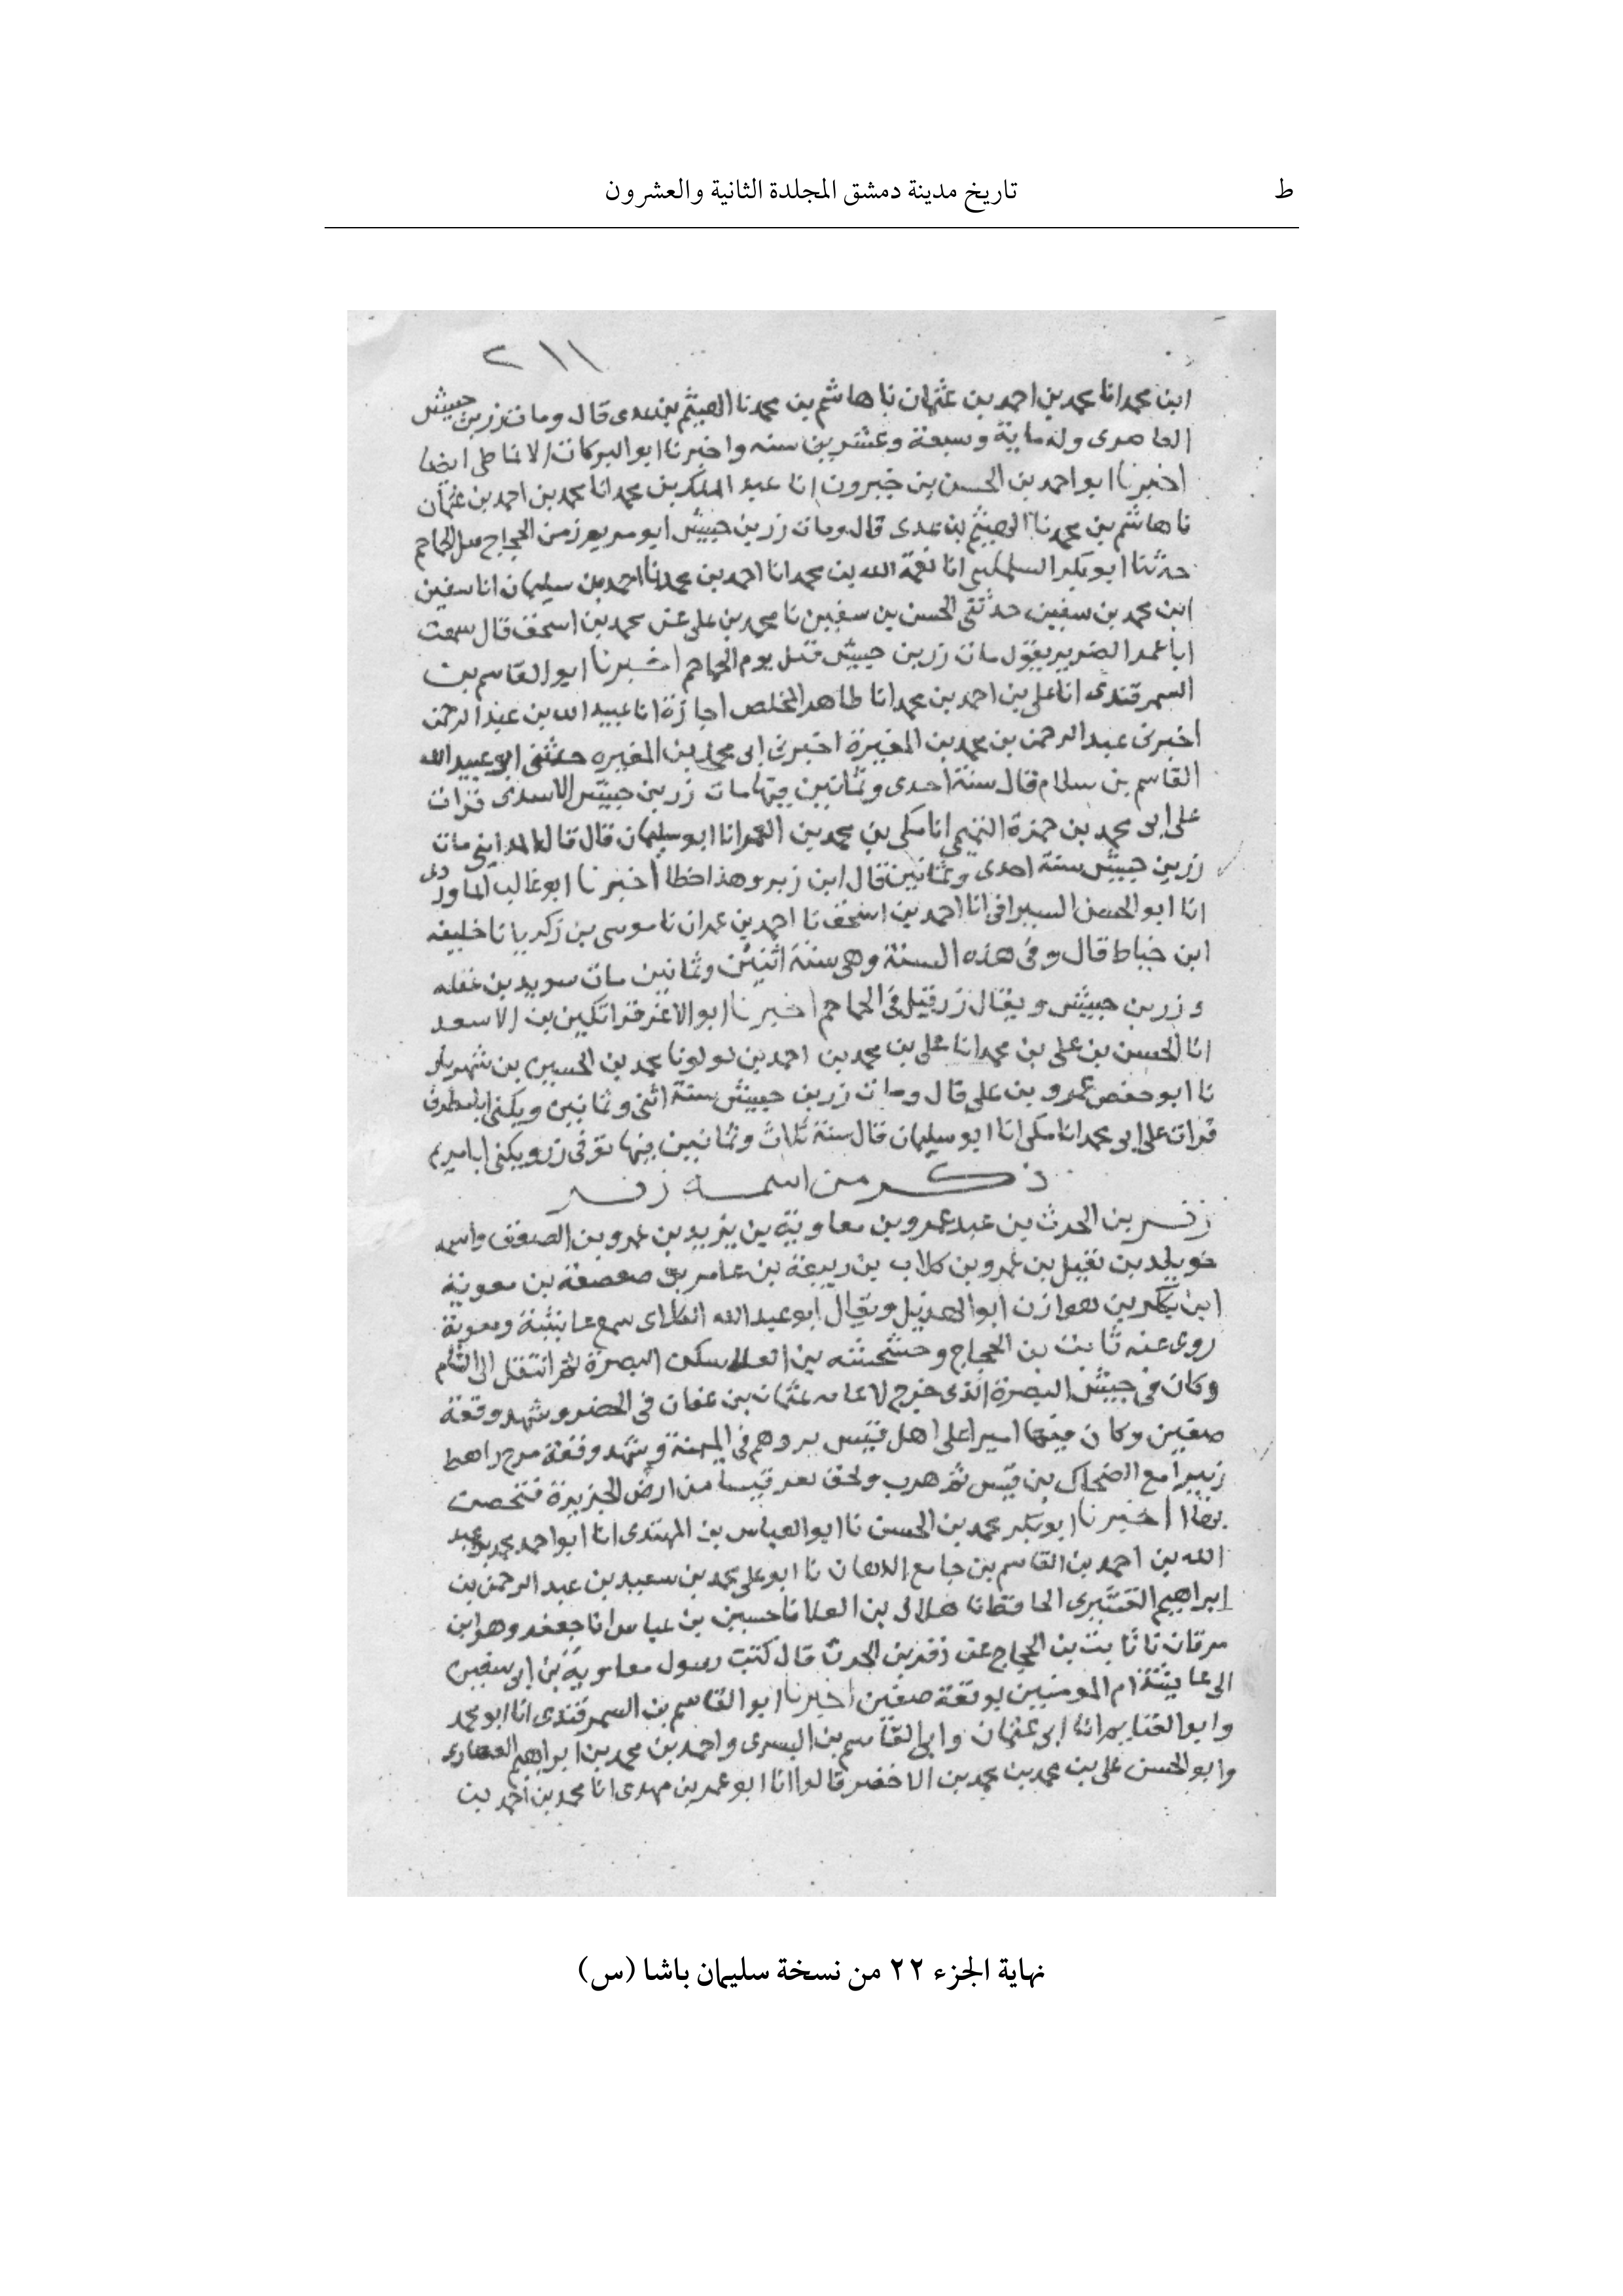 ط
تاريخ مدينة دمشق المجلدة الثانية والعشرون
٢١١
ابن محمد انا محمد بن احمد بن عثمان نا هاشم بن محمد نا الهيثم بن عدى قال ومات زر بن حبيش
الغاضرى وله ماية وسبعة وعشرين سنه واخبرنا ابو البركات الانماطى ايضا
اخبرنا ابو احمد بن الحسن بن خيرون انا عبد الملك بن محمد انا محمد بن احمد بن عثمان
نا هاشم بن محمد نا الهيثم بن عدى قال ومات زر بن حبيش ابو مريم زمن الحجاج الجماجم
حدثنا ابو بكر انا نعمة الله بن محمد انا احمد بن محمد نا احمد بن سليمان انا سفين
ابن محمد بن سفين حدثنى الحسن بن سفين نا محمد بن على عن محمد بن اسحق قال سمعت
ابا عمر الضرير يقول مات زر بن حبيش قتل يوم الجماجم اخبرنا ابو القاسم بن
السمرقندى انا على بن احمد بن محمد انا طاهر المخلص اجازة انا عبيد الله بن عبد الرحمن
اخبرنى عبد الرحمن بن محمد بن المغيرة اخبرنى ابى محمد بن المغيره حدثنى ابو عبيد الله
القاسم بن سلام قال سنة احدى وثمانين فيها مات زر بن حبيش الاسدى قرات
على ابى محمد بن حمزة انا مكى بن محمد بن الغمر انا ابو سليمان قال قال المداينى مات
زر بن حبيش سنة احدى وثمانين قال ابن زبر وهذا خطا اخبرنا ابو غالب الماوردى
انا ابو الحسن السيرافى انا احمد بن اسحق نا احمد بن عمران نا موسى بن زكريا نا خليفه
ابن خياط قال وفى هذه السنة وهى سنة اثنين وثمانين مات سويد بن غفله
و زر بن حبيش ويقال زر قتل فى الجماجم اخبرنا ابو الاغر قراتكين بن الاسعد
انا الحسن بن على بن محمد انا على بن محمد بن احمد بن لولو نا محمد بن الحسين بن شهريار
نا ابو حفص عمرو بن على قال ومات زر بن حبيش سنة اثنى وثمانين ويكنى
قرات على ابى محمد انا مكى انا ابو سليمان قال سنة ثلاث وثمانين فيها توفى زر ويكنى ابا مريم
ذكر من اسمه زفر
زفر بن الحرث بن عبد عمرو بن معاوية بن يزيد بن عمرو بن الصعق واسمه
خويلد بن نفيل بن عمرو بن كلاب بن ربيعة بن عامر بن صعصعة بن معوية
ابن بكر بن هوازن ابو الهذيل ويقال ابو عبد الله الكلابى سمع عايشة ومعوية
روى عنه ثابت بن الحجاج و بن سكن البصرة ثم انتقل الى الشام
وكان فى جيش البصرة الذى خرج لاعانه عثمان بن عفان فى الحضر وشهد وقعة
صفين وكان فيها اميرا على اهل قنسرين وهم فى الميمنة وشهد وقعة مرج راهط
زبيرا مع الضحاك بن قيس ثم هرب ولحق بقرقيسا من ارض الجزيرة فتحصن
بها اخبرنا ابو بكر محمد بن الحسن نا ابو العباس بن المهتدى انا ابو احمد محمد بن عبد
الله بن احمد بن القاسم بن جامع الدهان نا ابو على محمد بن سعيد بن عبد الرحمن بن
ابراهيم القشيرى الحافظ نا هلال بن العلا نا حسين بن عياش انا جعفر وهو ابن
برقان نا ثابت بن الحجاج عن زفر بن الحرث قال كنت رسول معاوية بن ابى سفين
الى عايشة ام المومنين بوقعة صفين اخبرنا ابو القاسم بن السمرقندى انا ابو محمد
وابو الغنايم ابنا ابى عثمان وابى القاسم بن البسرى واحمد بن محمد بن ابراهيم القصارى
وابو الحسن على بن محمد بن محمد بن الاخضر قالوا انا ابو عمر بن مهدى انا محمد بن احمد بن
نهاية الجزء ٢٢ من نسخة سليمان باشا (س)